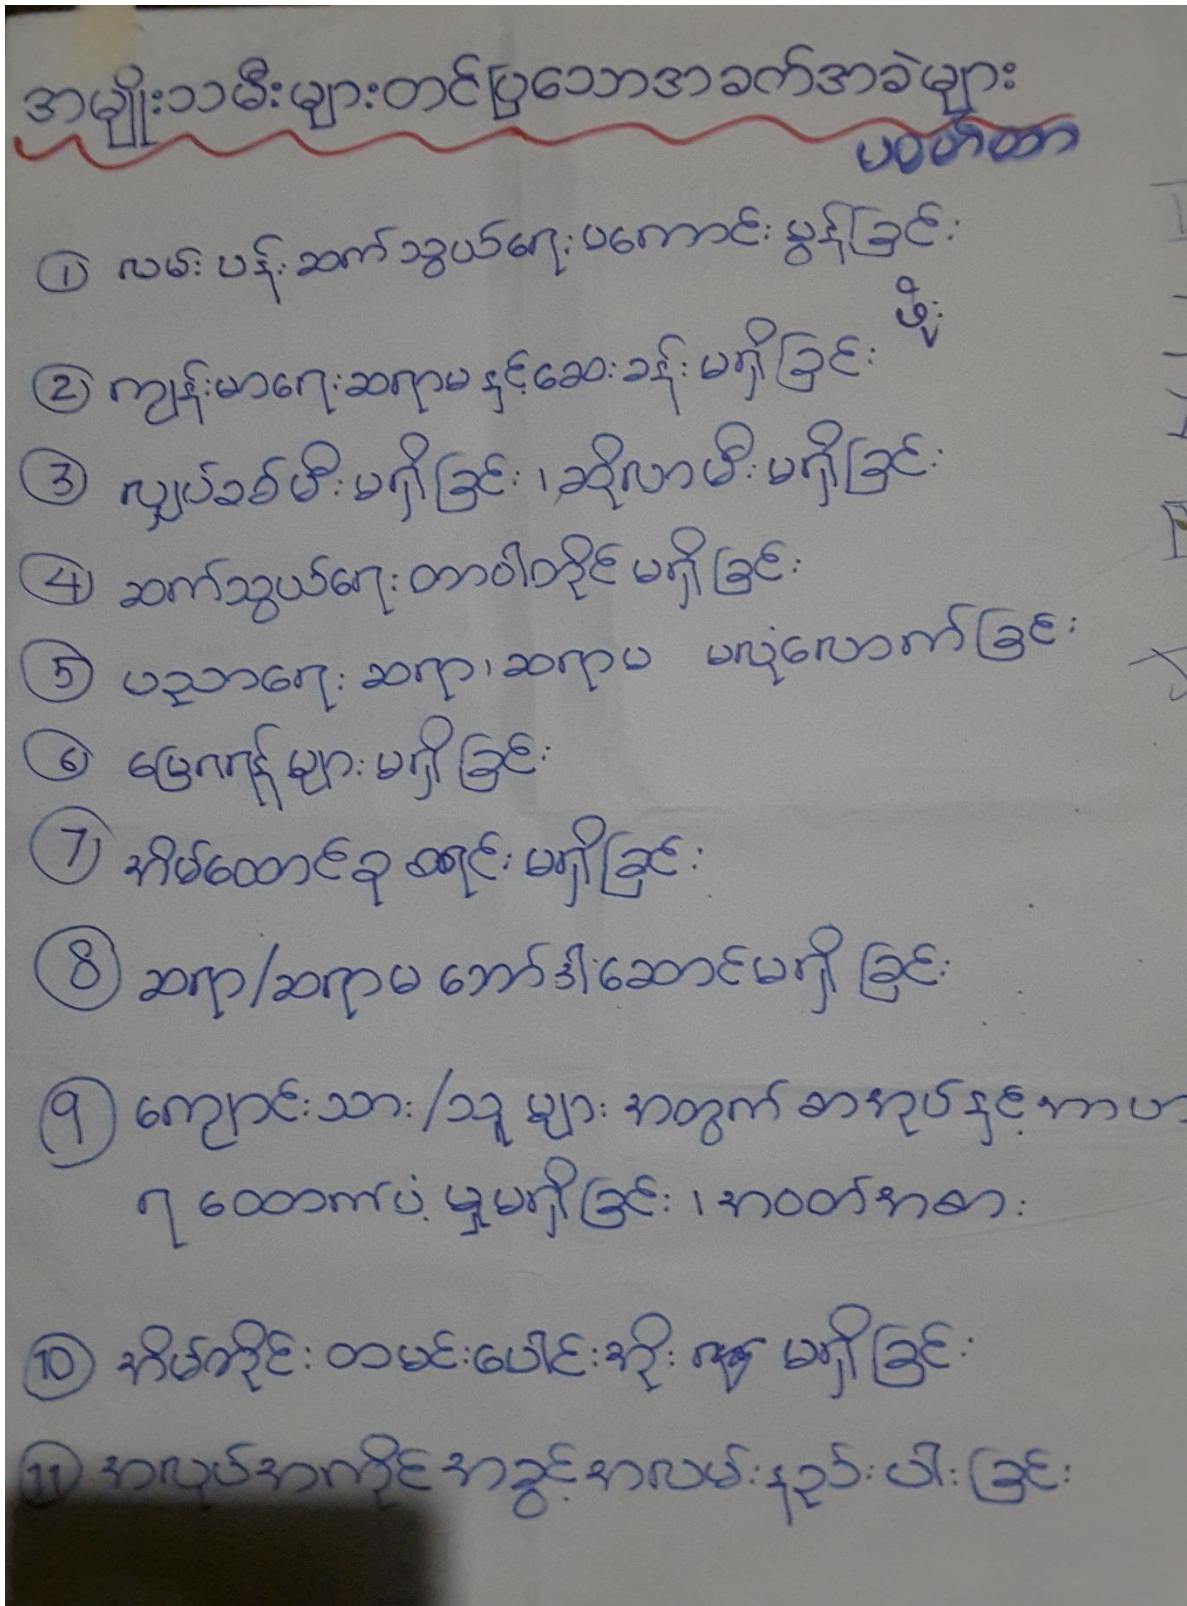 အမျိုးသမီးများတင်ပြသောအခက်အခဲများ
① လမ်းပန်းဆက်သွယ်ရေးမကောင်းမွန်ခြင်း
② ကျန်းမာရေးဆရာမနှင့်ဆေးခန်းမရှိခြင်း
③ လျှပ်စစ်မီးမရှိခြင်း၊ဆိုလာမီးမရှိခြင်း
④ ဆက်သွယ်ရေးတာဝါတိုင်မရှိခြင်း
⑤ ပညာရေးဆရာ၊ဆရာမ မလုံလောက်ခြင်း
⑥ မြေဂရန်များမရှိခြင်း
⑦ အိမ်ထောင်စုစာရင်းမရှိခြင်း
⑧ ဆရာ/ဆရာမ ဘော်ဒါဆောင်မရှိခြင်း
⑨ ကျောင်းသား/သူများအတွက်စာအုပ်နှင့်အာဟာ
ရ ထောက်ပံ့မှုမရှိခြင်း၊အဝတ်အစား
⑩ အိမ်တိုင်းထမင်းပေါင်းအိုး မရှိခြင်း
⑪ အလုပ်အကိုင်အခွင့်အလမ်းနည်းပါးခြင်း